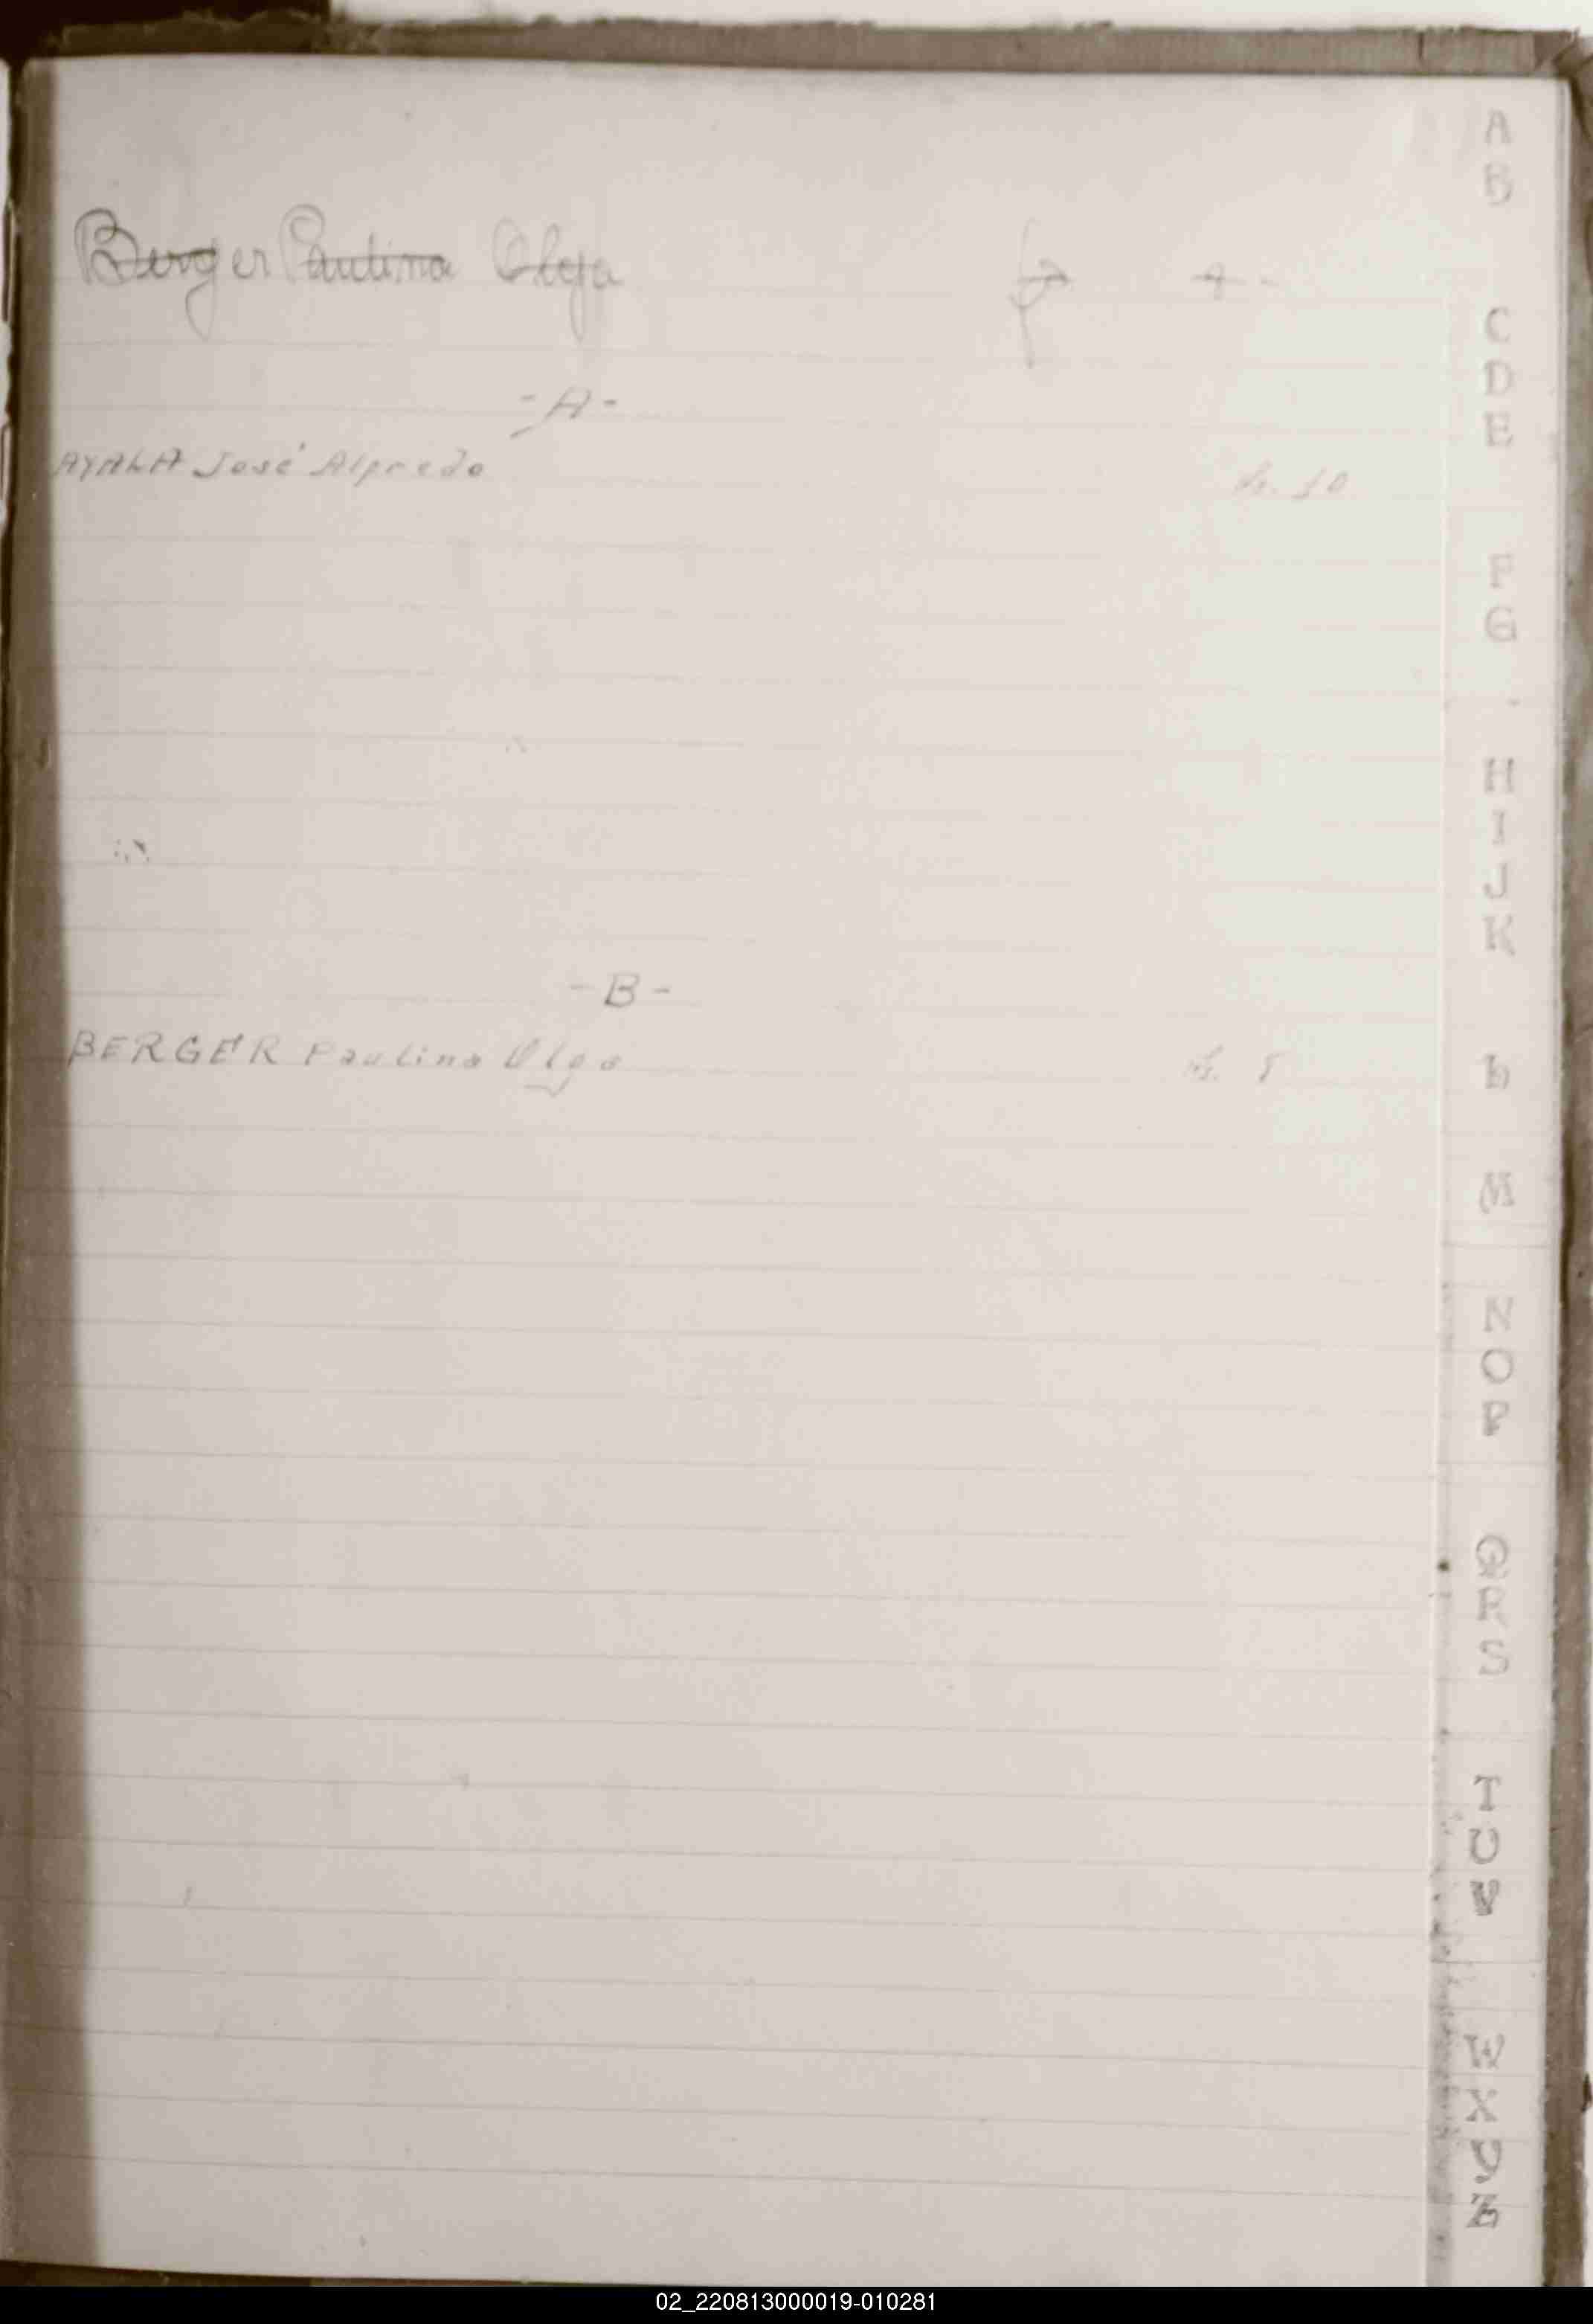 Berger Paulina Olga
- A -
AYALA José Alfredo 10
- B -
BERGER Paulina Olga
A
B
C
D
E
F
G
H
I
J
K
L
M
N
O
P
Q
R
S
T
U
V
W
X
Y
Z
02_220813000019-010281